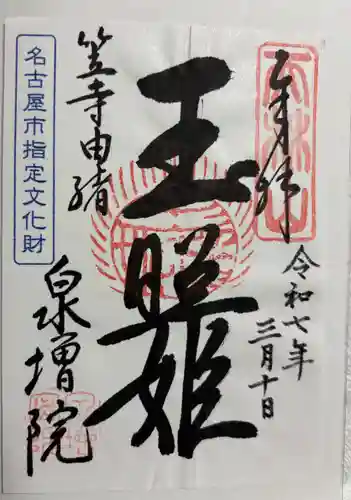 奉拝
令和七年
三月十日
玉照姫
笠寺由緒
泉増院
名古屋市指定文化財